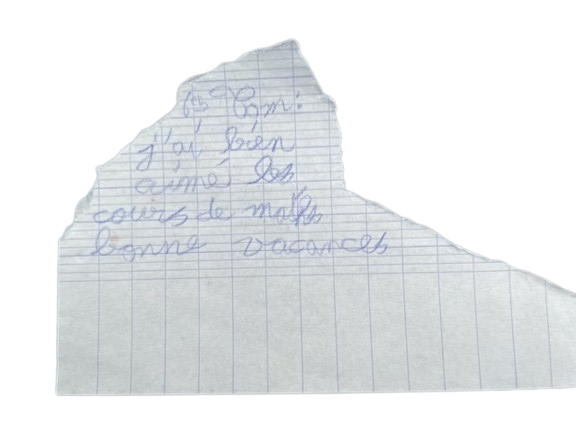 j'ai bien
aimé les
cours de maths
bonne vacances